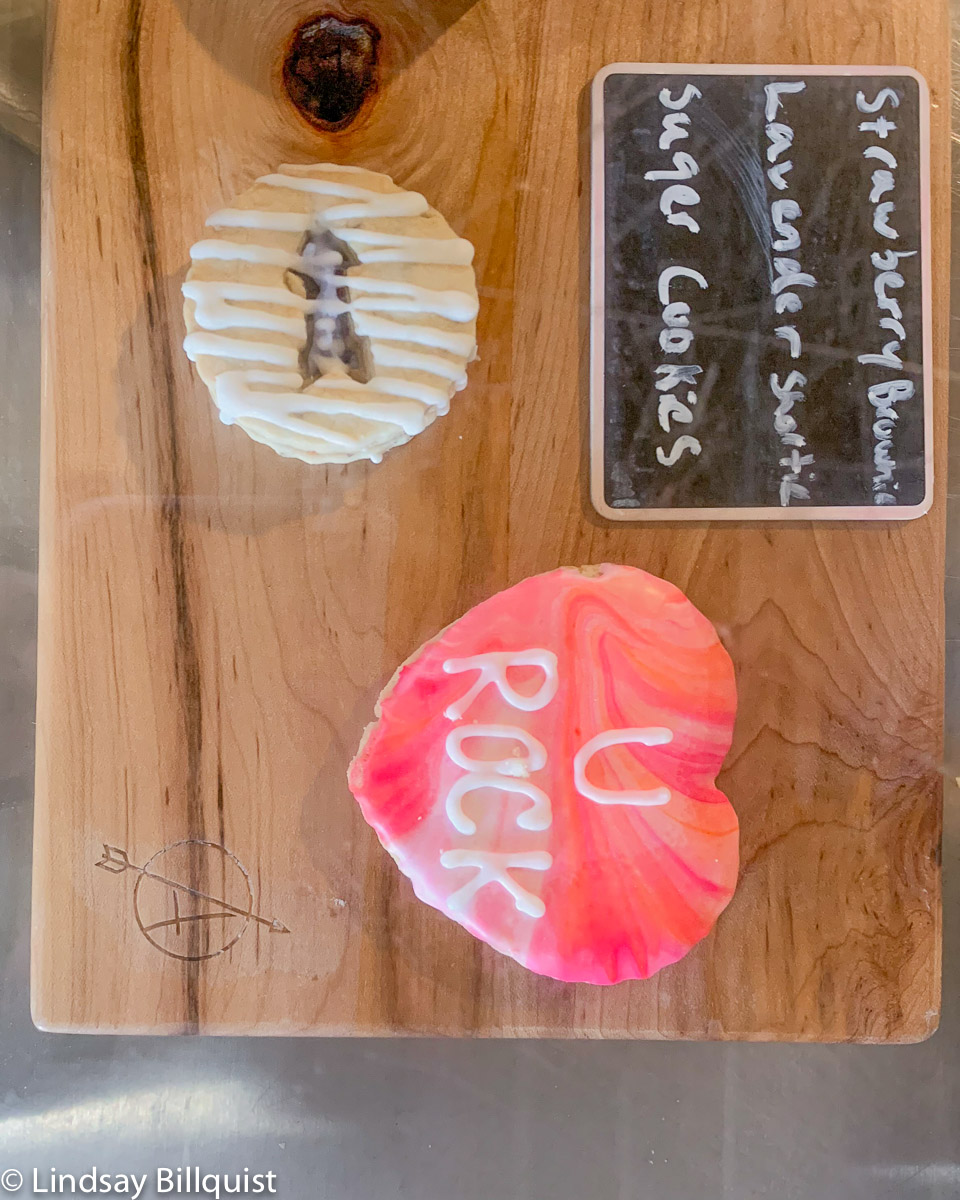 Strawberry Brownie
Lavender Shortie
Suger Cookies
U
ROCK
© Lindsay Billquist